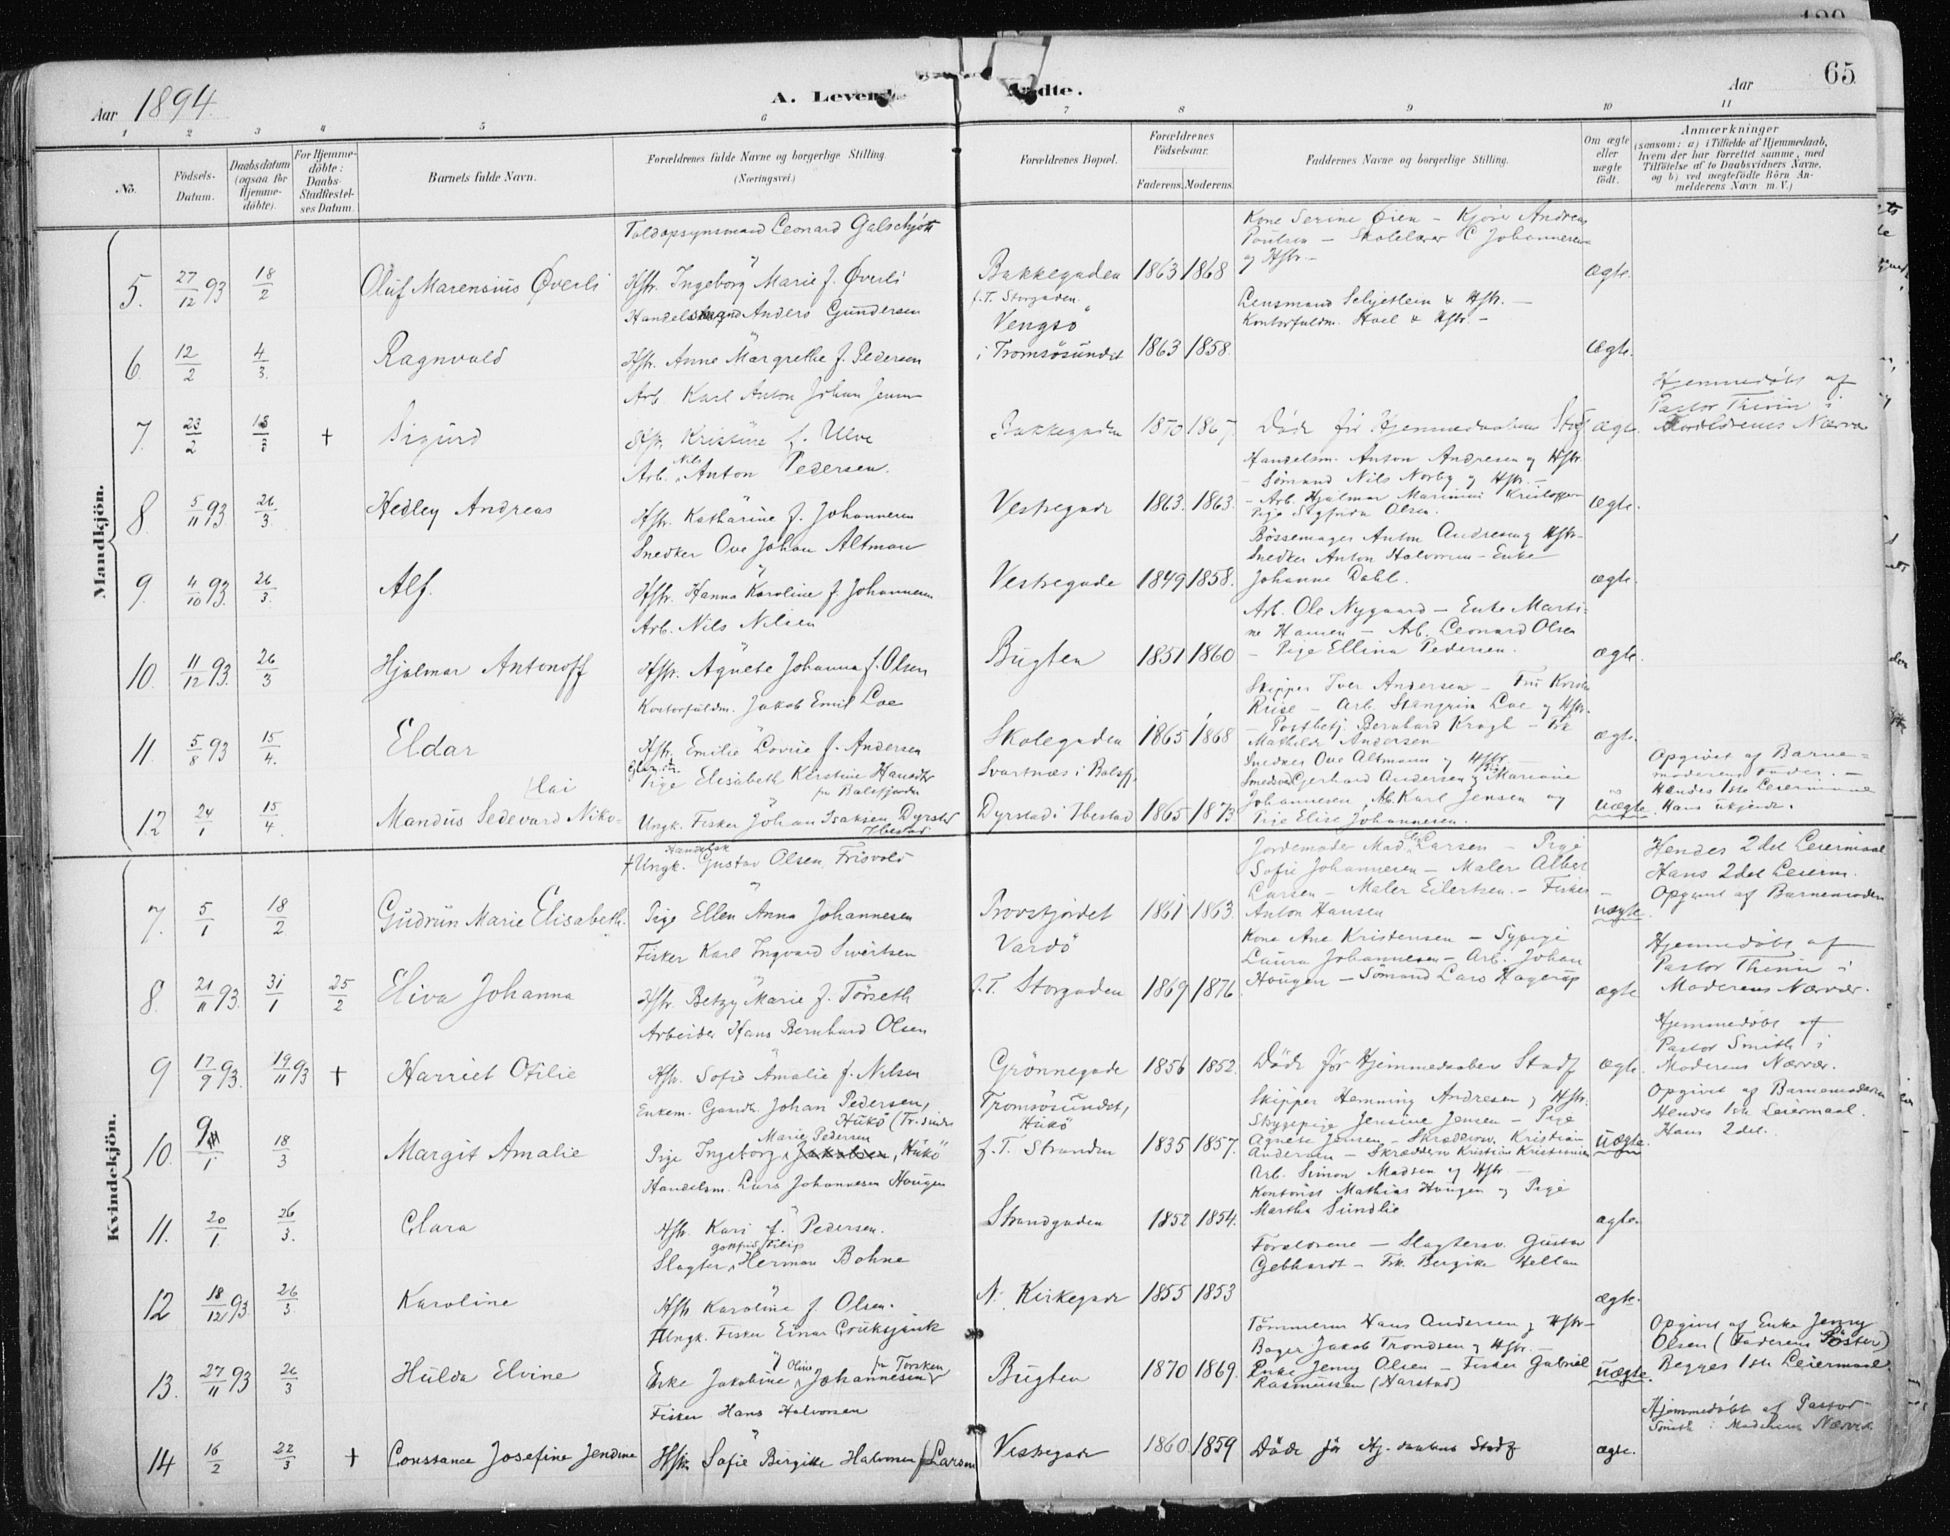 65
Aar 1894.
A. Levende Fødte.
Aar
1 2 3 4 5 6 7 8 9 10 11
No.
Födsels-Datum.
Daabsdatum (ogsaa for Hjemme-döbte).
For Hjemme-döbte: Daabs-Stadfæstel-ses Datum.
Barnets fulde Navn.
Forældrenes fulde Navne og borgerlige Stilling
(Næringsvei.)
Forældrenes Bopæl.
Forældrenes Födselsaar.
Faderens. Moderens.
Faddernes Navne og borgerlige Stilling.
Om ægte eller uægte födt.
Anmærkninger
(saasom: a) i Tilfælde af Hjemmedaab, hvem der har forrettet samme, med Tilföielse af to Daabsvidners Navne, og b) ved uægtefödte Börn An-melderens Navn m. V.)
Mandkjön.
Toldopsynsmand Leonard Galschjött
Kone Serine Øien – Kjører Andreas
Poulsen – Skolelærer C Johannesen
og Hstr. –
5. 27/12 93 18/2 Oluf Marensius Överli Hstr. Ingeborg Marie f. Överli Bakkegaden 1863 1868 ægte.
f. T. Storgaden.
Handelsmand Anders Gundersen
Vengsö
Lensmand Schjetlein & Hstr. –
Kontorfuldm. Hoel & Hstr. –
6. 12/2 4/3. Ragnvald Hstr. Anne Margrethe f. Pedersen i Tromsösundet 1863 1858. ægte.
Arb. Karl Anton Johan Jensen
Hjemmedöbt af
Pastor Thesin i
7. 23/2 + Sigurd Hstr. Kristine f. Ulve Bakkegaden 1870 1867 Döde før Hjemmedaabens Stadf ægte. Forældrenes Nærvær
Arb. Nils Anton Pedersen.
Handelsm. Anton Andresen og Hstr
– Sömand Nils Norby og Hstr. –
8 5/11 93 26/3 Hedley Andreas Hstr. Katharine f. Johannesen Vestregade 1863. 1863. – Arb. Hjalmar Marinius Kristoffersen ægte.
Pige Sigfrida Olsen.
Snedker Ove Johan Altman
Bössemager Anton Andresen og Hstr–
Snedker Anton Halvorsen – Enke
9. 4/10 93. 26/3. Alf. Hstr. Hanna Karoline f. Johannesen Vestregade 1849 1858. Johanne Dahl. ægte.
Arb. Nils Nilsen
Arb. Ole Nygaard – Enke Marti-
ne Hansen – Arb. Leonard Olsen
10. 11/12 93. 26/3 Hjalmar Antonoff Hstr. Agnete Johanna f. Olsen Bugten 1851 1860 – Pige Ellina Pedersen. ægte.
Kontorfuldm. Jakob Emil Loe
Skipper Iver Andersen –
Riise – Arb. Stangrim Loe og Hstr.
11. 5/8 93 15/4. Eldar Hstr. Emilie Lovise f. Andersen Skolegaden 1865 1868 – Postbetj. Bernhard Krogh – ægte.
Mathilde Andersen
Pige Elisabeth Kirstine Hansdtr fr Balsfjorden Svartnæs i Balsfj.
Snedker Ove Altmann og Hstr.
Smedsvd Gerhard Andersen og Pige Mariane
Opgivet af Barne-
moderens Fader. –
Hendes 1ste Leiermaal
12 24/1 15/4. Mandus Sedevard Niko-lai Ungk. Fisker Johan Isaksen, Dyrstad Ibestad Dyrstad i Ibestad 1865 1873 Johannesen, Arb. Karl Jensen og uægte. Hans ukjendt.
Pige Elise Johannesen.
Kvindekjön.
+ Ungk. Handelsk Gustav Olsen Frisvold
Jordemoder Mad. Larsen – Pige
Sofie Johannesen – Maler Albert
Larsen – Maler Eilertsen. – Fisker
Hendes 2det Leiermaal
Hans 2det Leierm.
Opgivet af Barnemoderen
7. 5/1 18/2 Gudrun Marie Elisabeth. Pige Ellen Anna Johannesen Provstjordet 1861 1863. Anton Hansen uægte.
Fisker Karl Ingvard Sivertsen
Vardö
Kone Ane Kristensen – Sypige
Laura Johannesen – Arb. Johan
Hjemmedöbt af
Pastor Thesin i
8. 21/11 93. 31/1 25/2 Eliva Johanna Hstr. Betzy Marie f. Törseth f. T. Storgaden 1869 1876 Hougen – Sömand Lars Hagerup ægte Moderens Nærvær.
Arbeider Hans Bernhard Olsen
Hjemmedöbt af
Pastor Smith i
9 17/9 93. 19/11 93 + Harriet Otilie Hstr. Sofie Amalie f. Nilsen Grönnegade 1856 1852. Döde før Hjemmedaabens Stadf ægte. Moderens Nærvær.
Enkem. Gaardb. Johan Pedersen, Hukö (Tr. sundet
Tromsösundet, Hukö
Skipper Henning Andresen og Hstr.
Skyggepige Jensine Jensen – Pige
Opgivet af Barnemoderen
Hendes 1ste Leiermaal.
Hans 2det.
10. 9/1 18/3 Margit Amalie Pige Ingeborg Marie Pedersen, Hukö f. T. Stranden 1835 1857. Agnete Jensen – Skræddersv. Kristian uægte.
Andersen – Skræddersv Kristian Kristensen
Handelsm. Lars Johannesen Hougen
Arb. Simon Madsen og Hstr –
Kontorist Mathias Hougen og Pige
11. 20/1. 26/3. Clara Hstr. Kari f. Pedersen. Strandgaden 1852 1854. Martha Sundlie ægte.
Slagter Gottfried Filip Herman Bohne
Forældrene – Slagtersv. Gustav
Gebhardt – Frk. Bergitte Hellan
12 18/12 93. 26/3 Karoline Hstr Karoline f. Olsen. N. Kirkegade 1855 1853 ægte.
Ungk. Fisker Einar
Tömmerm Hans Andersen og Hstr–
Bager Jacob Trondsen og Hstr. –
Opgivet af Enke Jenny
Olsen (Faderens Söster)
13. 27/11 93 26/3 Hulda Elvine Enke Jakobine Oline Johannesen fr Torsken Bugten 1870 1869. Enke Jenny Olsen – Fisker Gabriel uægte. Begges 1ste Leiermaal
Rasmussen (Harstad)
Fisker Hans Halvorsen
Hjemmedöbt af Pastor
Smith i Moderens Nærvær
14 16/2 22/3 + Constance Josefine Jendine Hstr. Sofie Birgitte Halvorsen f Larsen Vestregade 1860 1859 Döde før Hj. daabens Stadf ægte.